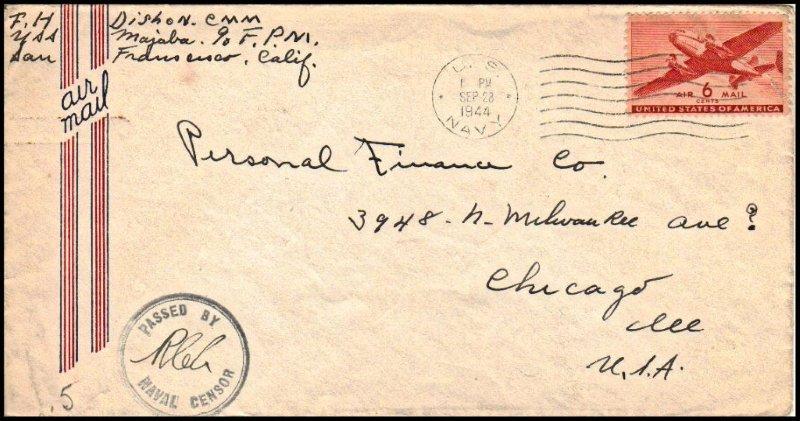 F. H Dishon. CMM
USS Majaba. % F. P.M.
San Francisco, Calif.
air
mail
U.S.
PM
SEP 23
1944
NAVY
AIR 6 MAIL
CENTS
UNITED STATES OF AMERICA
Personal Finance Co.
3948-N-Milwaukee ave?
Chicago
Ill
U.S.A.
PASSED BY
NAVAL CENSOR